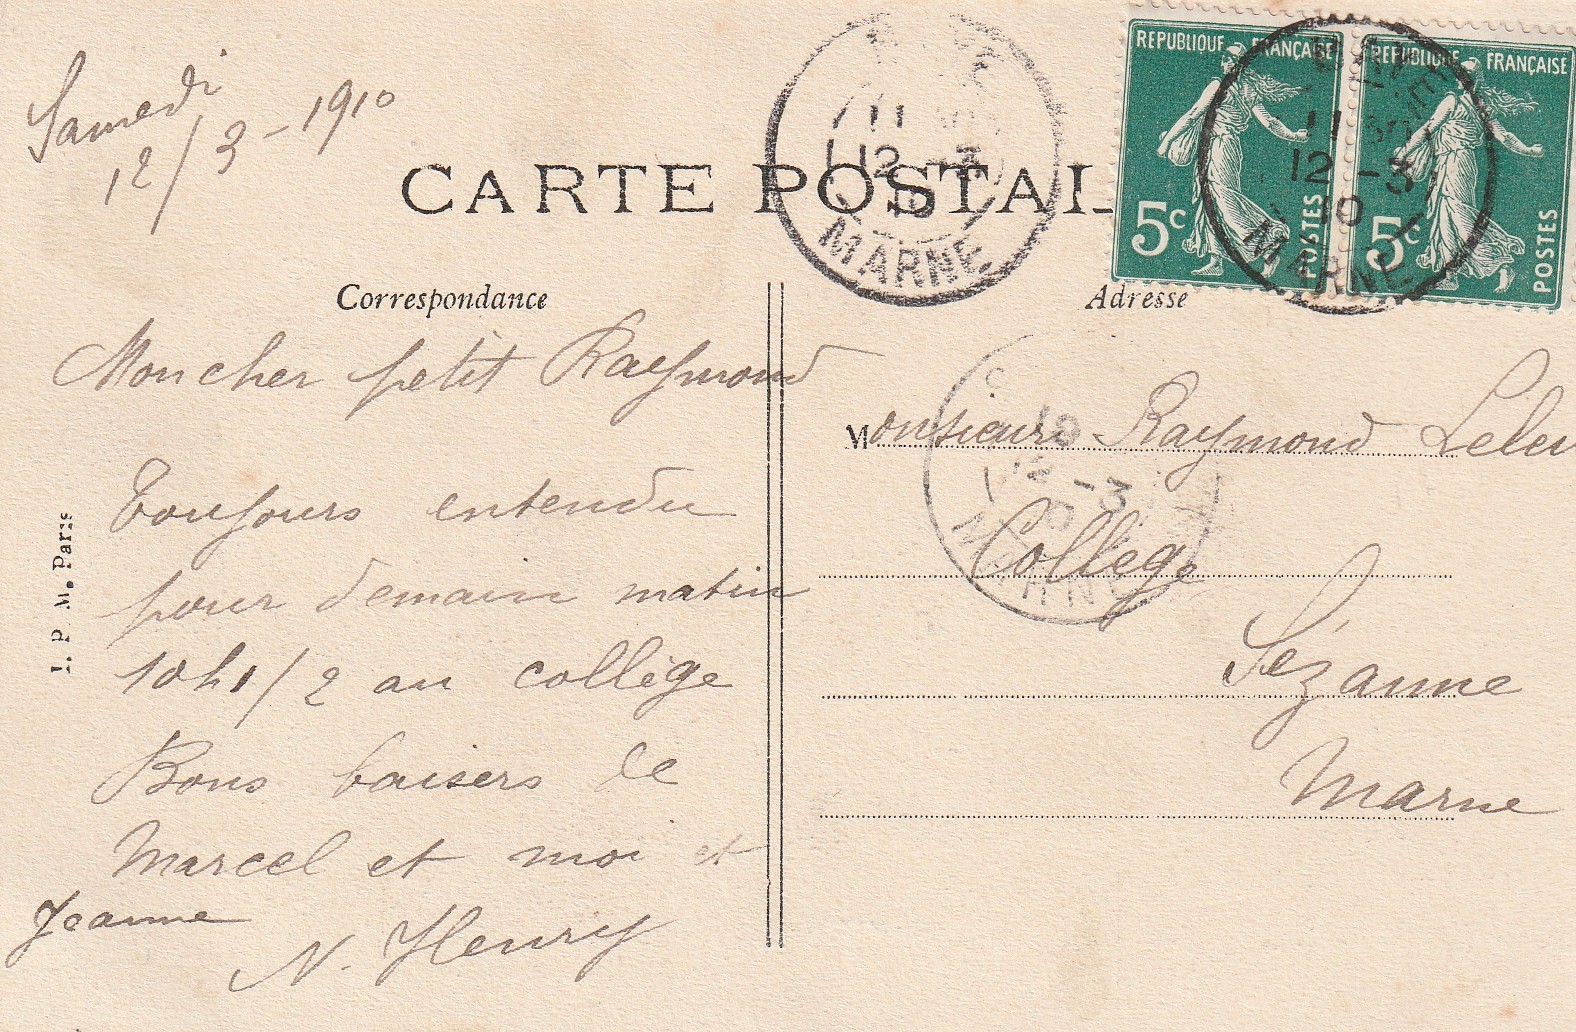 Samedi
12/3-1910
CARTE POSTAL
REPUBLIQUE FRANÇAISE
5c
POSTES
REPUBLIQUE FRANÇAISE
5c
POSTES
11
12 -3
10
MARNE
11
12 -3
10
MARNE
Correspondance
Adresse
Mon cher petit Raymond
Toujours entendu
pour demain matin
10h 1/2 au collège
Bons baisers de
Marcel et moi et
Jeanne
N. Henry
Monsieur Raymond
Collège
Sézanne
Marne
12 -3
MARNE
Paris